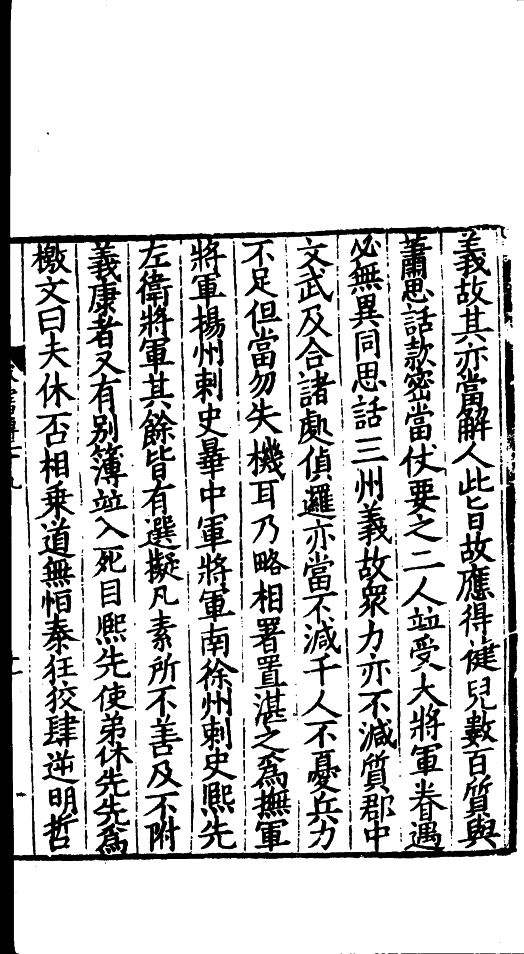 義故其亦當解人此旨故應得健兒數百質與
蕭思話款密當仗要之二人並受大將軍眷遇
必無異同思話三州義故衆力亦不減質郡中
文武及合諸處偵邏亦當不減千人不憂兵力
不足但當勿失機耳乃略相署置湛之爲撫軍
將軍揚州刺史曄中軍將軍南徐州刺史熙先
左衛將軍其餘皆有選擬凡素所不善及不附
義康者又有别簿並入死目熙先使弟休先先爲
檄文曰夫休否相乗道無恒泰狂狡肆逆明哲